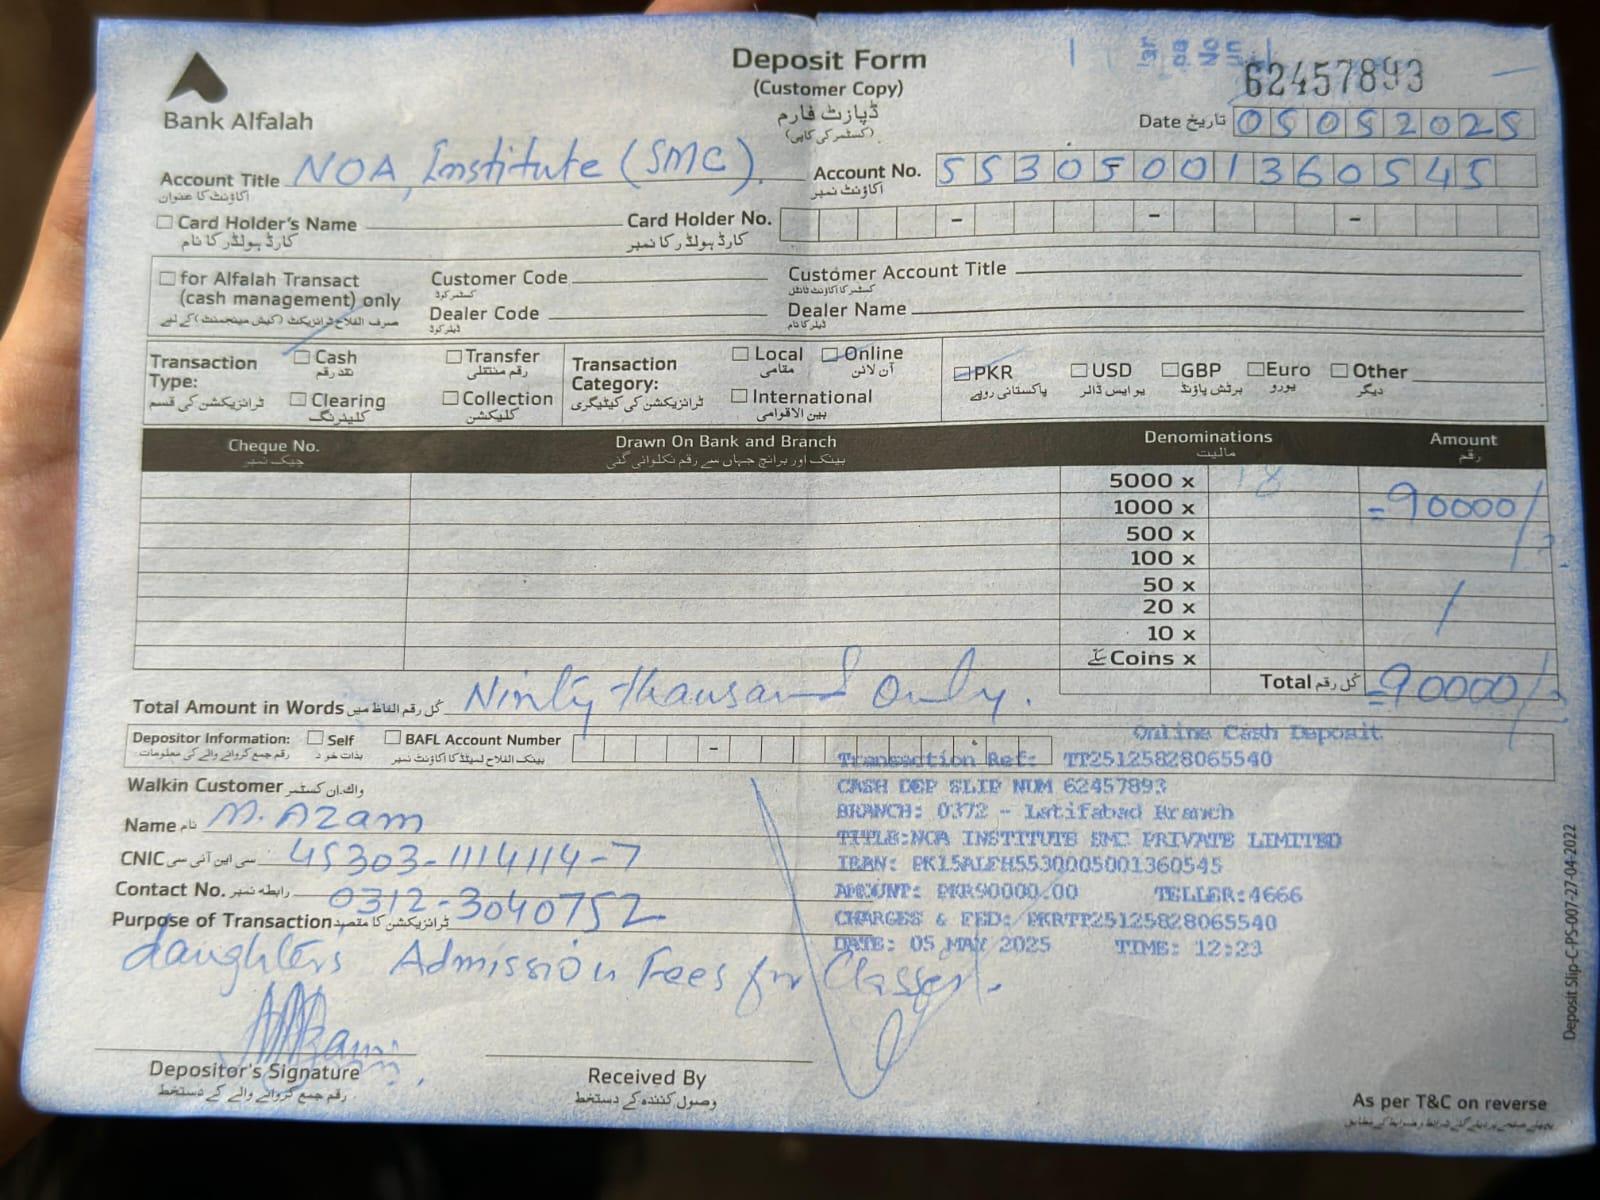 Bank Alfalah
Deposit Form
(Customer Copy)
ڈپازٹ فارم
(کسٹمر کی کاپی)
62457893
Date تاریخ 05052025
Account Title NOA Institute (SMC).
اکاؤنٹ کا عنوان
Account No. 55305001360545
اکاؤنٹ نمبر
Card Holder's Name
کارڈ ہولڈر کا نام
Card Holder No.
کارڈ ہولڈر کا نمبر
for Alfalah Transact
(cash management) only
صرف الفلاح ٹرانزیکٹ (کیش مینجمنٹ) کے لیے
Customer Code
کسٹمر کوڈ
Customer Account Title
کسٹمر کا اکاؤنٹ ٹائٹل
Dealer Code
ڈیلر کوڈ
Dealer Name
ڈیلر کا نام
Transaction
Type:
ٹرانزیکشن کی قسم
Cash
نقد رقم
Transfer
رقم منتقلی
Clearing
کلیئرنگ
Collection
کلیکشن
Transaction
Category:
ٹرانزیکشن کی کیٹیگری
Local
مقامی
Online
آن لائن
International
بین الاقوامی
PKR
پاکستانی روپے
USD
یو ایس ڈالر
GBP
برٹش پاؤنڈ
Euro
یورو
Other
دیگر
Cheque No.
چیک نمبر
Drawn On Bank and Branch
بینک اور برانچ جہاں سے رقم نکلوائی گئی
Denominations
مالیت
Amount
رقم
5000 x 18
1000 x =90000/
500 x
100 x
50 x
20 x
10 x
سکے Coins x
Total کل رقم =90000/
Total Amount in Words کل رقم الفاظ میں Ninty thausand Only.
Depositor Information:
رقم جمع کروانے والے کی معلومات
Self
بذات خود
BAFL Account Number
بینک الفلاح لمیٹڈ کا اکاؤنٹ نمبر
Walkin Customer واک ان کسٹمر
Name نام M. Azam
CNIC سی این آئی سی 45303-1114114-7
Contact No. رابطہ نمبر 0312-3040752
Purpose of Transaction ٹرانزیکشن کا مقصد
daughters Admission Fees for Classes.
Online Cash Deposit
Transaction Ref: TT25125828065540
CASH DEP SLIP NUM 62457893
BRANCH: 0372 - Latifabad Branch
TITLE:NOA INSTITUTE SMC PRIVATE LIMITED
IBAN: PK15ALFH5530005001360545
AMOUNT: PKR90000.00 TELLER:4666
CHARGES & FED: PKRTT25125828065540
DATE: 05 MAY 2025 TIME: 12:23
Depositor's Signature
رقم جمع کروانے والے کے دستخط
Received By
وصول کنندہ کے دستخط
As per T&C on reverse
Deposit Slip-C-PS-007-27-04-2022